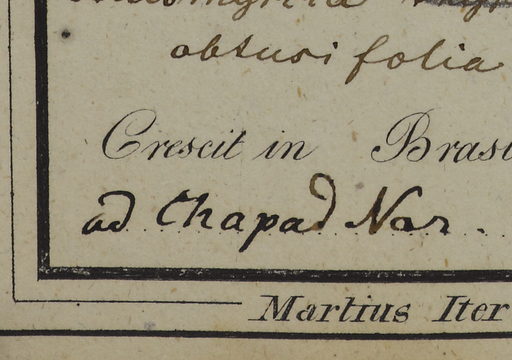 obtusifolia
Crescit in Bras
ad Chapad Nar.
Martius Iter